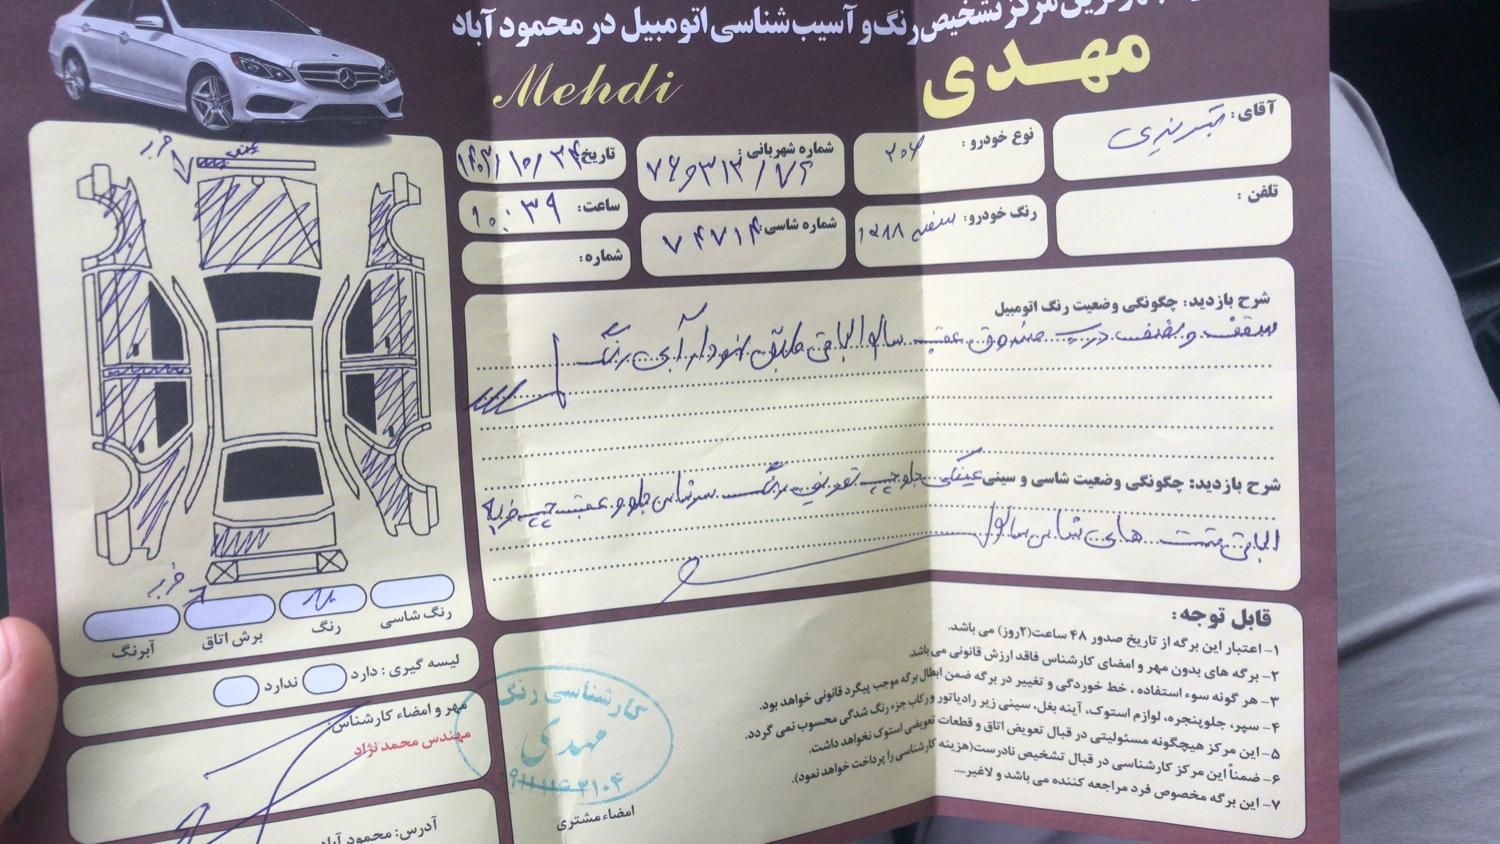 مرکز تشخیص رنگ و آسیب شناسی اتومبیل در محمود آباد
مهدی
Mehdi
آقای: تبریزی
نوع خودرو: ۲۰۶
شماره شهربانی:
تاریخ: ۱۴۰۳/۱۰/۲۴
تلفن:
رنگ خودرو: سفید ۱۳۸۸
شماره شاسی: ۷۴۷۱۴
ساعت: ۱۰:۳۹
شماره:
شرح بازدید: چگونگی وضعیت رنگ اتومبیل
سقف و نصف درب صندوق عقب سالم الباقی طبق نمودار آبی رنگ
شرح بازدید: چگونگی وضعیت شاسی و سینی
جلو چپ تعویض رنگ سرشاسی جلو و عقب چپ ضربه
الباقی قسمت های شاسی سالم
ضربه
ضربه
رنگ شاسی
رنگ
برش اتاق
آبرنگ
لیسه گیری: دارد ندارد
مهر و امضاء کارشناس:
مهندس محمد نژاد
کارشناسی رنگ
مهدی
امضاء مشتری
آدرس: محمود آباد
قابل توجه:
۱- اعتبار این برگه از تاریخ صدور ۴۸ ساعت(۲روز) می باشد.
۲- برگه های بدون مهر و امضای کارشناس فاقد ارزش قانونی می باشد.
۳- هر گونه سوء استفاده ، خط خوردگی و تغییر در برگه ضمن ابطال برگه موجب پیگرد قانونی خواهد بود.
۴- سپر، جلوپنجره، لوازم استوک، آینه بغل، سینی زیر رادیاتور و رکاب جزء رنگ شدگی محسوب نمی گردد.
۵- این مرکز هیچگونه مسئولیتی در قبال تعویض اتاق و قطعات تعویضی استوک نخواهد داشت.
۶- ضمناً این مرکز کارشناسی در قبال تشخیص نادرست(هزینه کارشناسی را پرداخت خواهد نمود).
۷- این برگه مخصوص فرد مراجعه کننده می باشد و لاغیر....